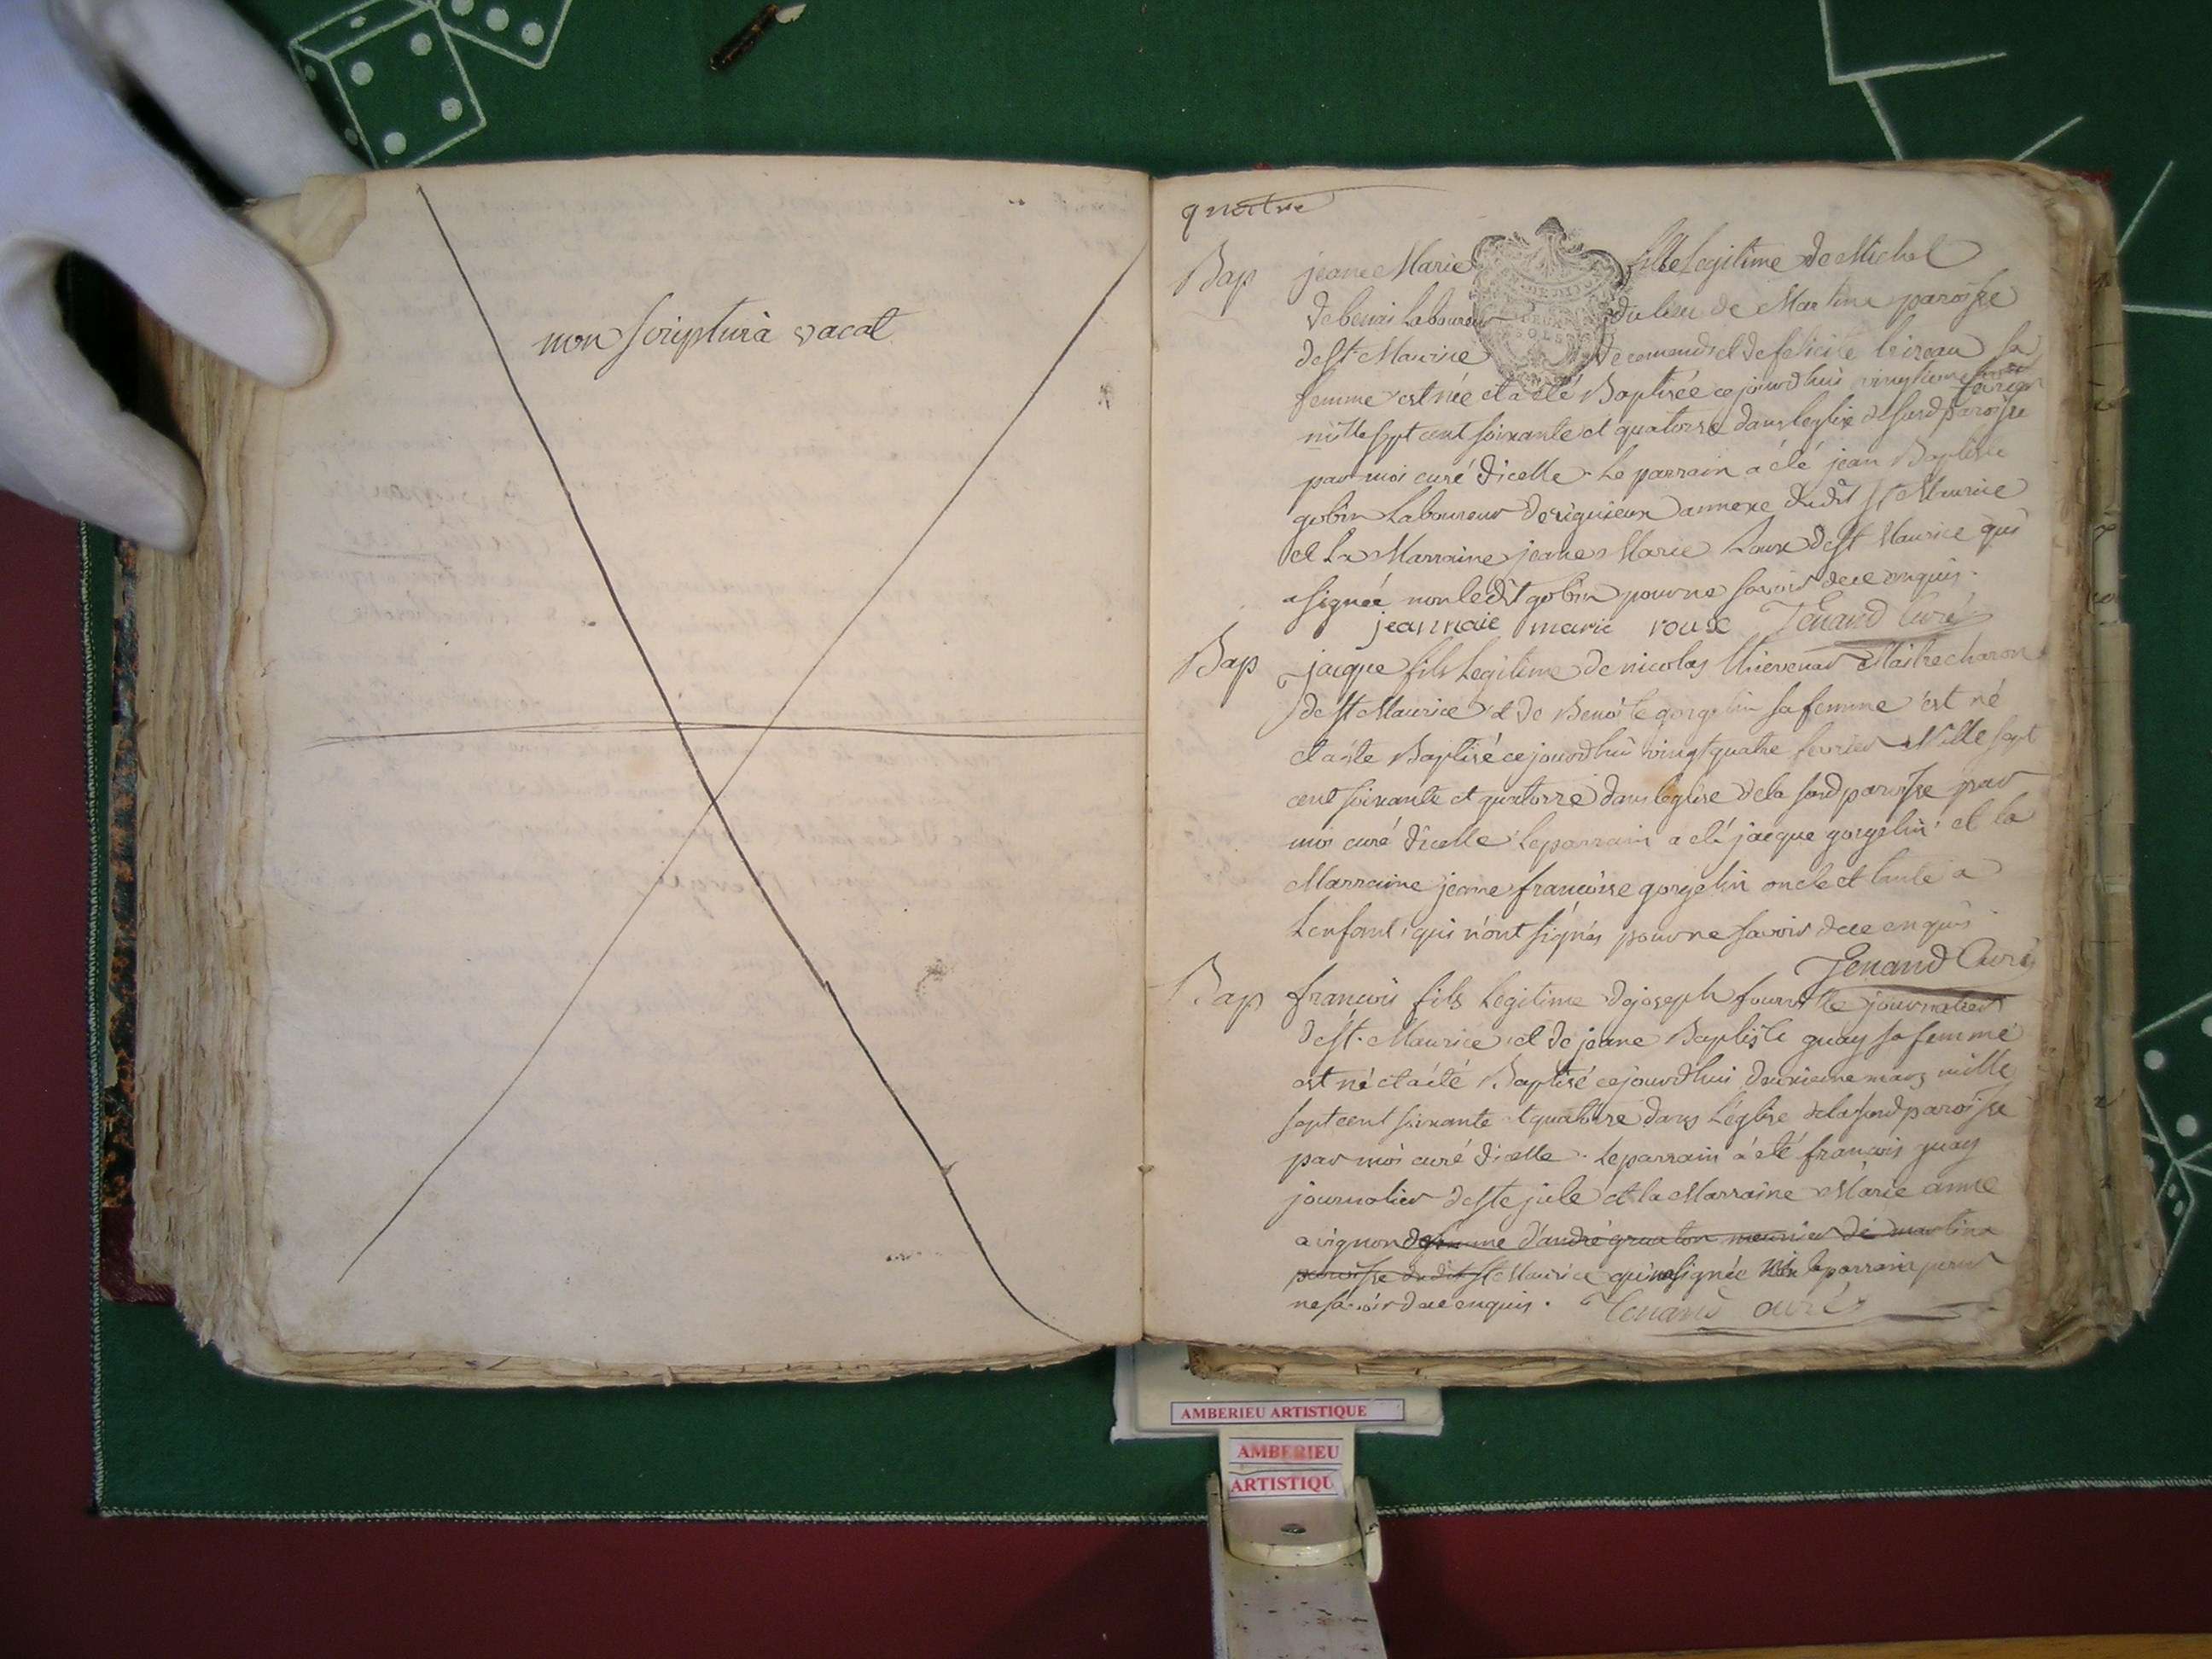 non scriptura vacat
quatre
Bap jeane Marie fille Legitime de Michel
debenis Laboureur du lieu de Martina paroisse
de St Maurice de et de felicite sa
femme est née et a été Baptisée cejourdhui vingtieme fevrier
mille sept cent soixante et quatorze dans leglise de susd paroisse
par moi curé dicelle. Le parrain a été jean Baptiste
gobin Laboureur de rigneux annexe dudit St Maurice
et La Marraine jeane Marie Roux de St Maurice qui
a signée non ledit gobin pour ne savoir de ce enquis.
jeannaie marie roux Tenand Curé
Bap jacque fils Legitime de nicolas thievenar Maitre charon
de St Maurice et de Benoite gorgelin sa femme est né
et a été Baptisé cejourdhui vingt quatre fevrier Mille sept
cent soixante et quatorze dans leglise de la susd paroisse par
moi curé dicelle Le parrain a eté jacque gorgelin et la
Marraine jeanne francoise gorgelin oncle et tante a
Lenfant, qui n'ont signés pour ne savoir de ce enquis
Tenand Curé
Bap francois fils Legitime de joseph journalier
de St. Maurice et de jeane Baptiste guay sa femme
est né et a été Baptisé cejourdhui deuxieme mars mille
sept cent soixante et quatorze dans Léglise de la susd paroisse
par moi curé dicelle. Le parrain a été francois guay
journalier de Ste jule et la Marraine Marie anne
avignon de femme d'andré meunier de martina
paroisse dudit St Maurice qui signée le parrain pour
ne savoir de ce enquis. Tenand curé
AMBERIEU ARTISTIQUE
AMBERIEU
ARTISTIQU